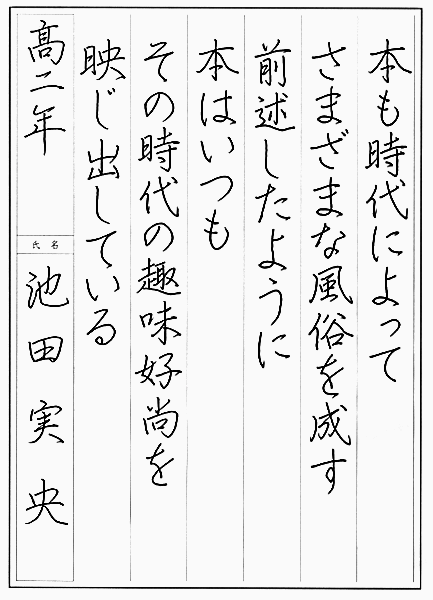 本も時代によって
さまざまな風俗を成す
前述したように
本はいつも
その時代の趣味好尚を
映じ出している
高二年
氏名
池田実央